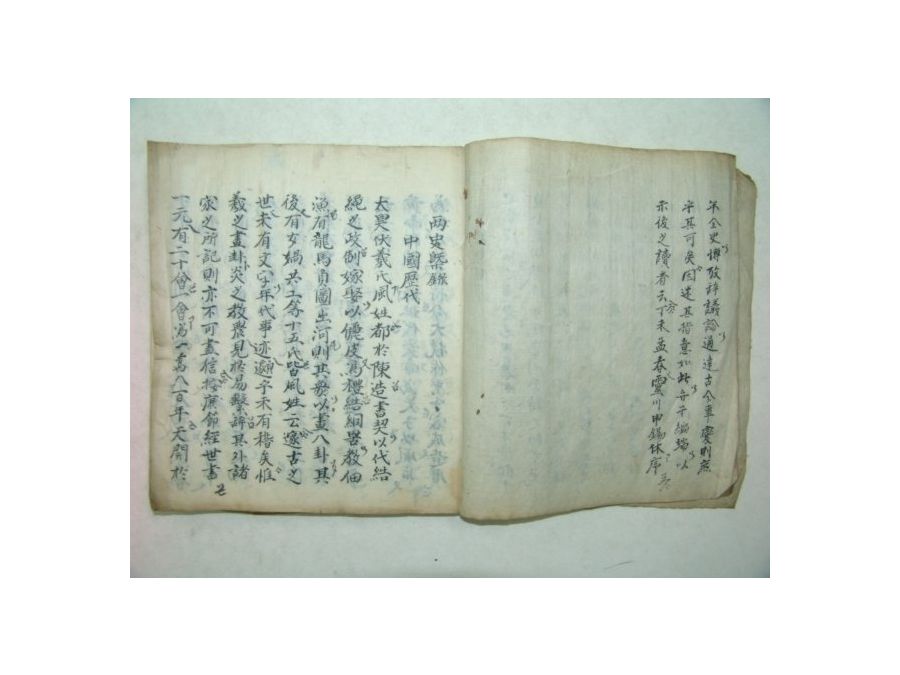 年全史博考辞議論通達古今事變則庶
乎其可矣因述其指意如此 弁于編端以
示後之讀者云丁未孟春靈川申錫休序
两史槩錄
中國歴代
太昊伏羲氏風姓都於陳造書契以代結
繩之政制嫁娶以儷皮爲禮結網罟教佃
漁有龍馬負圖出河則其發以畫八卦其
後有女媧共工等十五氏皆風姓云邃古之
世未有文字年代事迹邈乎未有稽矣惟
羲之畫卦炎之教農見於易繫辞其外諸
家之所記則亦不可盡信按康節經世書
一元有十二會一會爲一萬八百年天開於